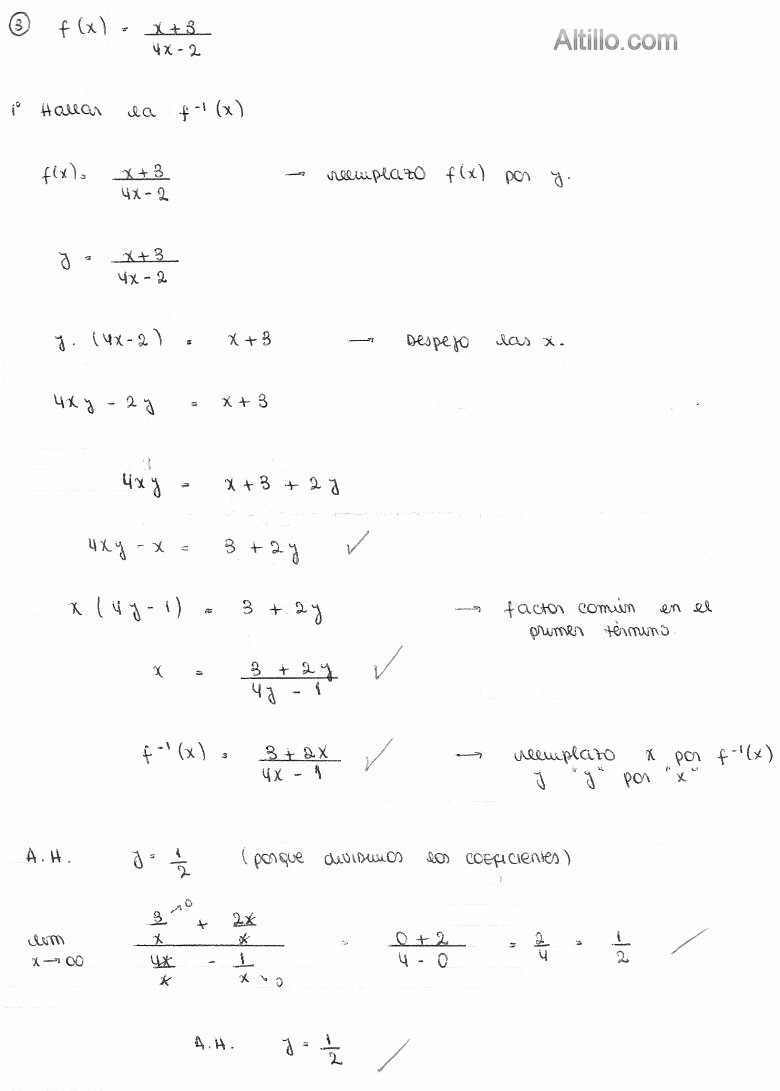 ③ f(x) = x+3 / 4x-2
Altillo.com
1° Hallar la f⁻¹(x)
f(x) = x+3 / 4x-2 → reemplazo f(x) por y.
y = x+3 / 4x-2
y. (4x-2) = x+3 → Despejo las x.
4xy - 2y = x+3
4xy = x+3 + 2y
4xy - x = 3 + 2y ✓
x (4y-1) = 3 + 2y → factor común en el
primer término.
x = 3 + 2y / 4y - 1 ✓
f⁻¹(x) = 3 + 2x / 4x - 1 ✓ → reemplazo x por f⁻¹(x)
y "y" por "x"
A.H. y = 1/2 (porque dividimos los coeficientes)
lim x→∞ (3/x →0 + 2x/x) / (4x/x - 1/x →0) = 0+2 / 4-0 = 2/4 = 1/2
A.H. y = 1/2